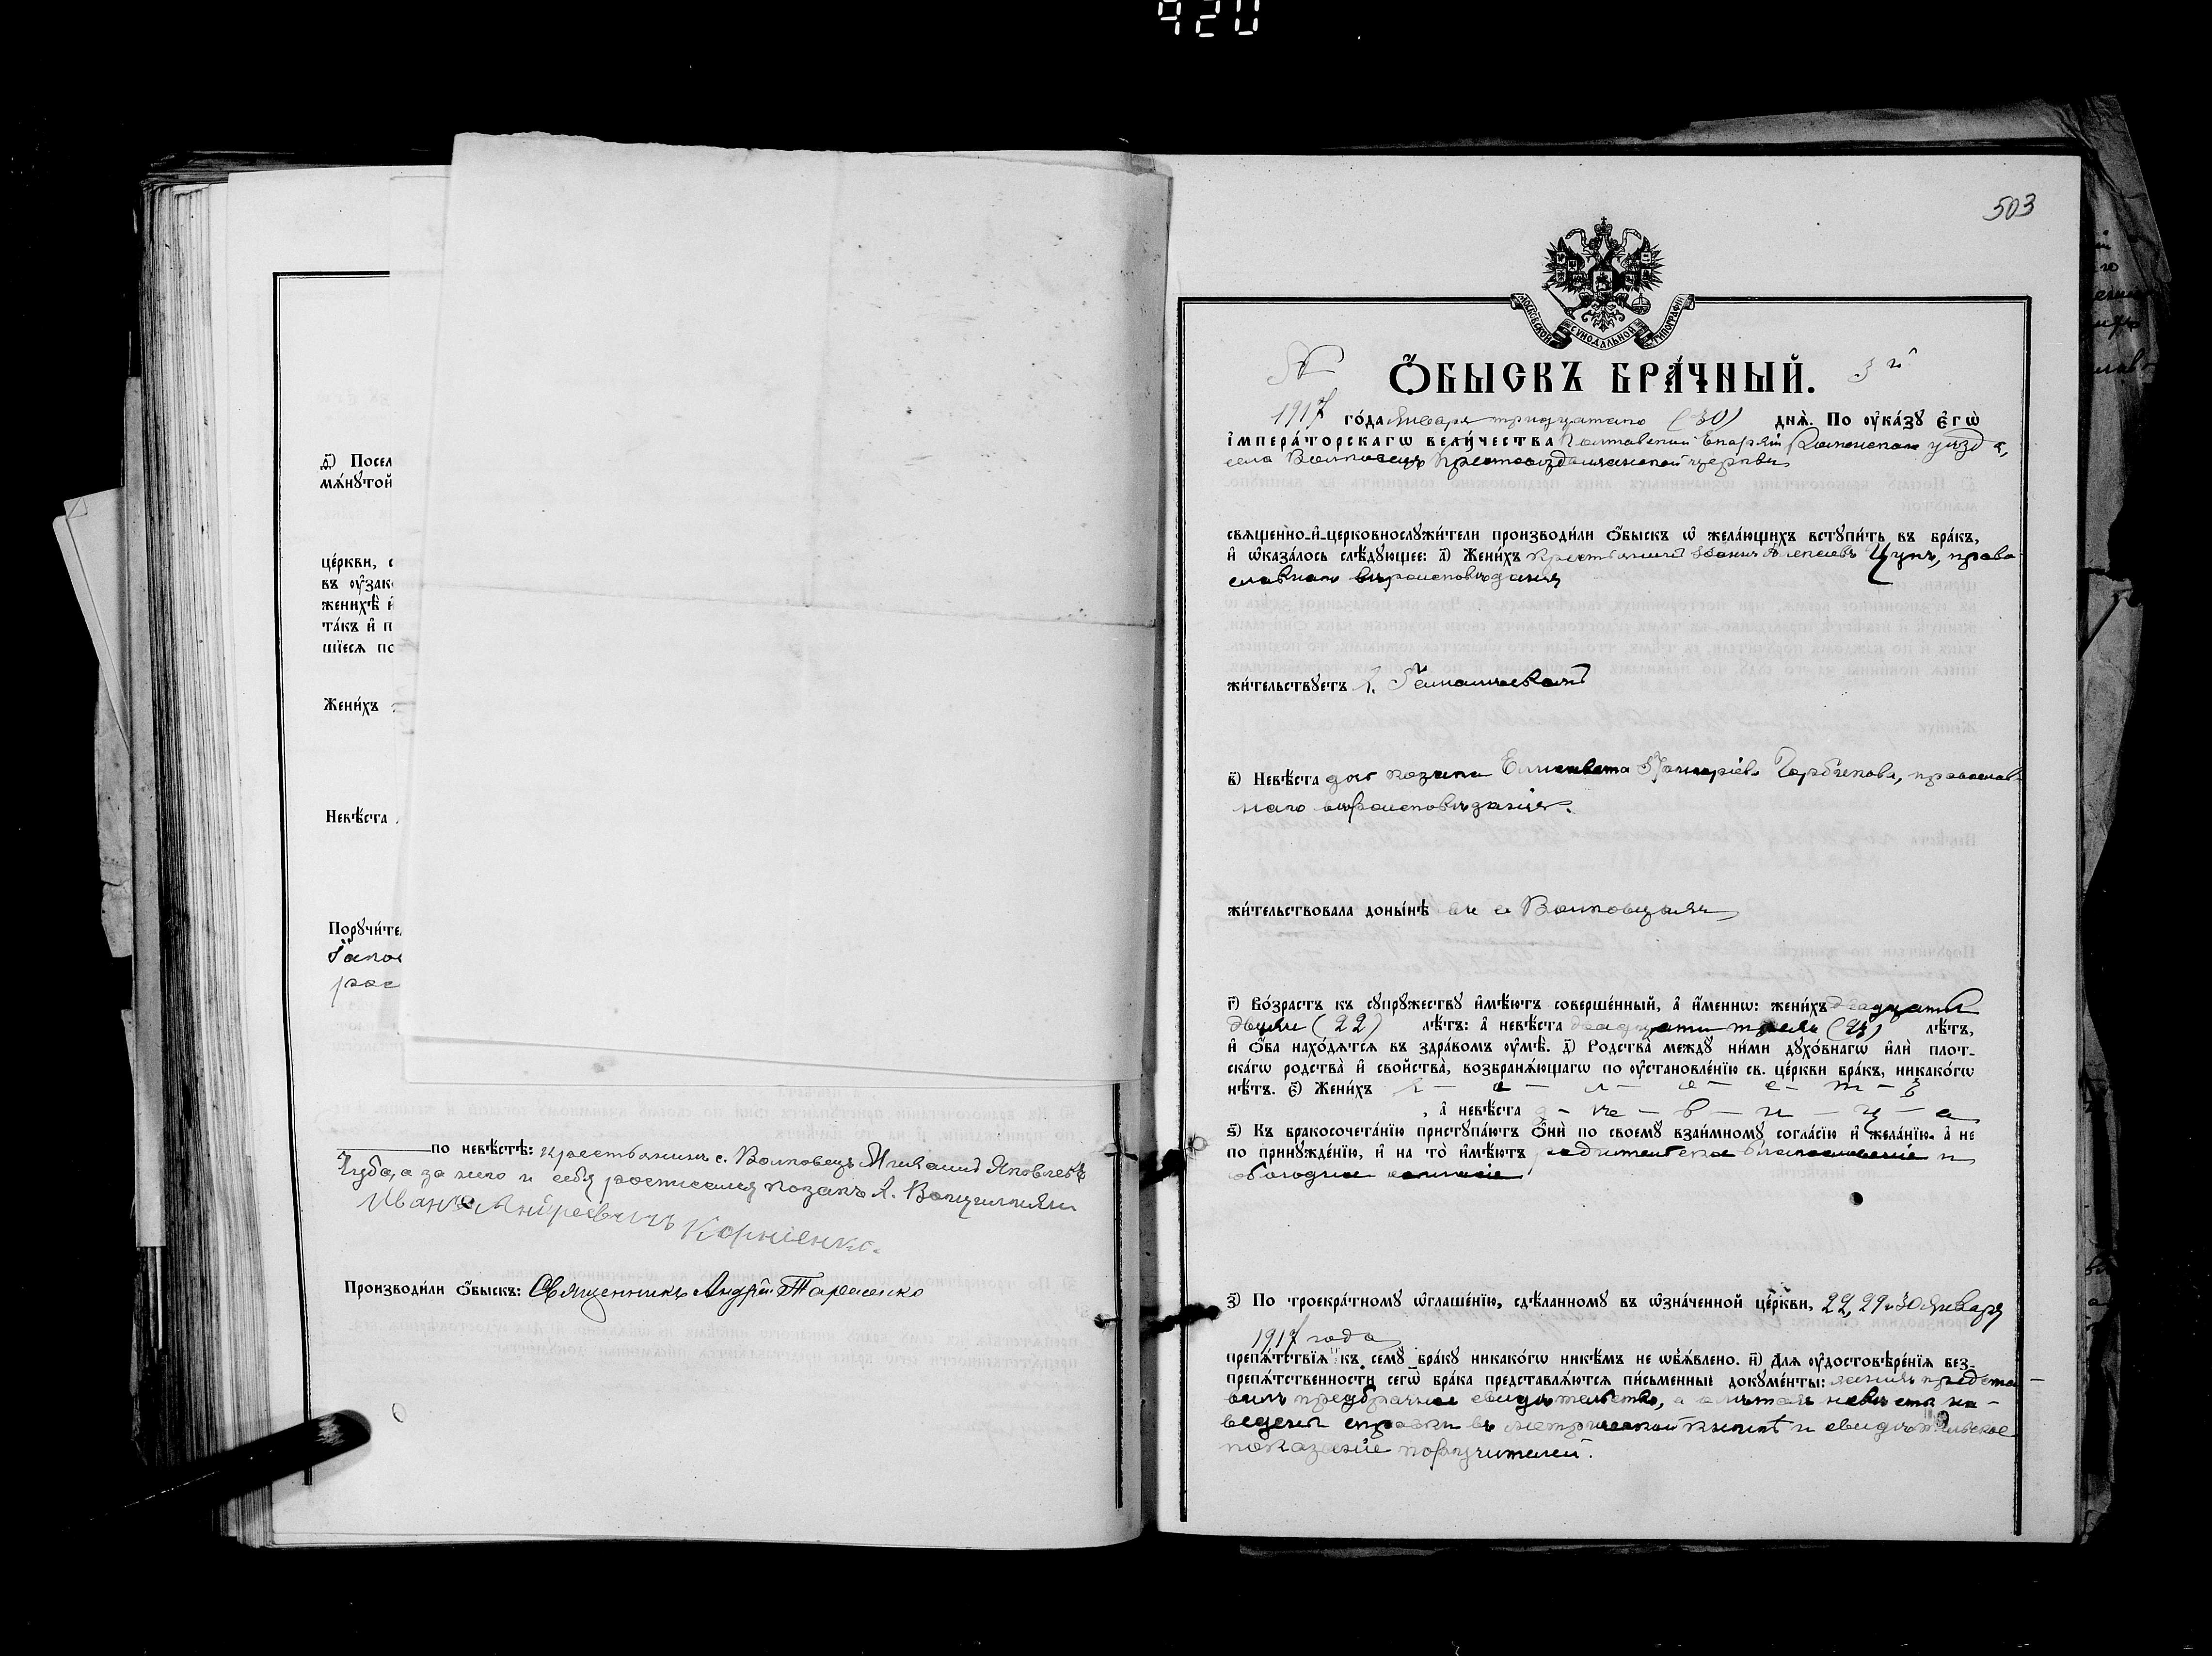 420
д҃) Посел
мѧнꙋтой
це́ркви, с
въ ᲂу҆зак
женихѣ̀ и҆
та́къ и҆ п
шїесѧ по
Жени́хъ
Невѣ́ста
Порꙋчи́те
рос
по невѣ́стѣ: крестьянинъ с. Волковецъ Михаилъ Яковлевъ
Чуба, а за него и себя росписался козакъ
Иванъ Андреевичъ Корніенко.
Производи́ли ѻ҆́быскъ: Священникъ Андрей Тарасенко
503
МОСКОВСКОЙ СѴНОДАЛЬНОЙ ТИПОГРАФІИ
№ Ѻ҆́БЫСКЪ БРА́ЧНЫЙ. 3й
1917 го́да Января тридцатаго (30) днѧ̀. По ᲂу҆ка́зꙋ є҆гѡ̀
і҆мпера́торскагѡ вели́чества Полтавской Епархіи Роменскаго уѣзда,
села Волковецъ Крестовоздвиженской церкви
свѧще́нно-и҆-церковнослꙋжи́тели производи́ли ѻ҆́быскъ ѡ҆ жела́ющихъ встꙋпи́ть въ бра́къ,
и҆ ѡ҆каза́лось слѣ́дꙋющее: а҃) Жени́хъ крестьянинъ Іоаннъ Алексіевъ Цупъ, право-
славнаго вѣроисповѣданія
жи́тельствꙋетъ х.
в҃) Невѣ́ста дочь козака Елисавета Горбенкова, православ-
наго вѣроисповѣданія.
жи́тельствовала доны́нѣ въ с. Волковцахъ
г҃) Во́зрастъ къ сꙋпрꙋ́жествꙋ и҆мѣ́ютъ соверше́нный, а҆ и҆́менно: жени́хъ двадцать
двухъ (22) лѣ́тъ: а҆ невѣ́ста двадцати трехъ (23) лѣ́тъ,
и҆ ѻ҆́ба нахо́дѧтсѧ въ здра́вомъ ᲂу҆мѣ̀. д҃) Родства̀ междꙋ̀ ни́ми дꙋхо́внагѡ и҆лѝ плот-
ска́гѡ родства̀ и҆ сво́йства̀, возбранѧ́ющагѡ по ᲂу҆становле́нїю св. це́ркви бра́къ, никако́гѡ
нѣ́тъ. є҃) Жени́хъ х - о - л - о - с - т - ъ
, а҆ невѣ́ста д - ѣ - в - и - ц - а
ѕ҃) Къ бракосочета́нїю пристꙋпа́ютъ ѻ҆нѝ по своемꙋ̀ взаи́мномꙋ согла́сїю и҆ жела́нїю. а҆ не
по принꙋжде́нїю, и҆ на то̀ и҆мѣ́ютъ родительское благословеніе и
обоюдное согласіе
з҃) По троекра́тномꙋ ѡ҆глаше́нїю, сдѣ́ланномꙋ въ ѡ҆зна́ченной це́ркви, 22, 29 и 30 Января
1917 года
препѧ́тствїѧ къ семꙋ̀ бра́кꙋ никако́гѡ никѣ́мъ не ѡ҆бъѧ́влено. и҃) Для ᲂу҆достовѣре́нїѧ без-
препѧ́тственности сегѡ̀ бра́ка представлѧ́ютсѧ пи́сьменные докꙋме́нты: женихъ предста-
вилъ предбрачное свидѣтельство, а о лѣтахъ невѣсты на-
ведены справки въ метрической книгѣ и свидѣтельское
показаніе поручителей.